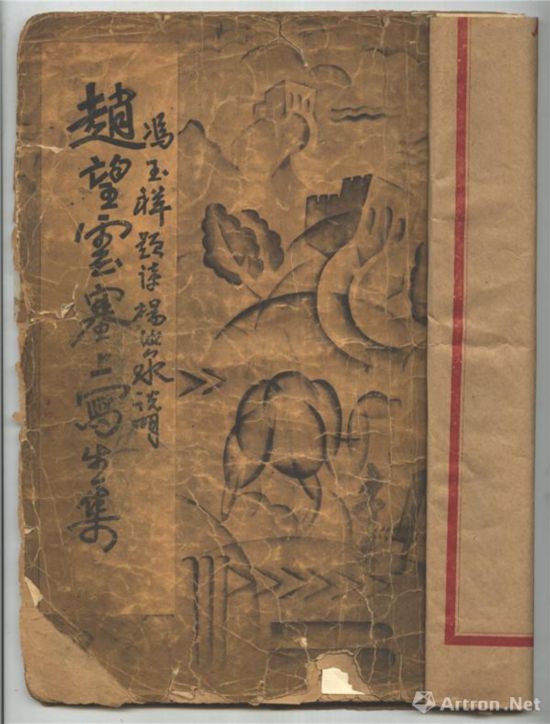 馮玉祥題詩楊汝泉說明
趙望雲塞上寫生集
Artron.Net